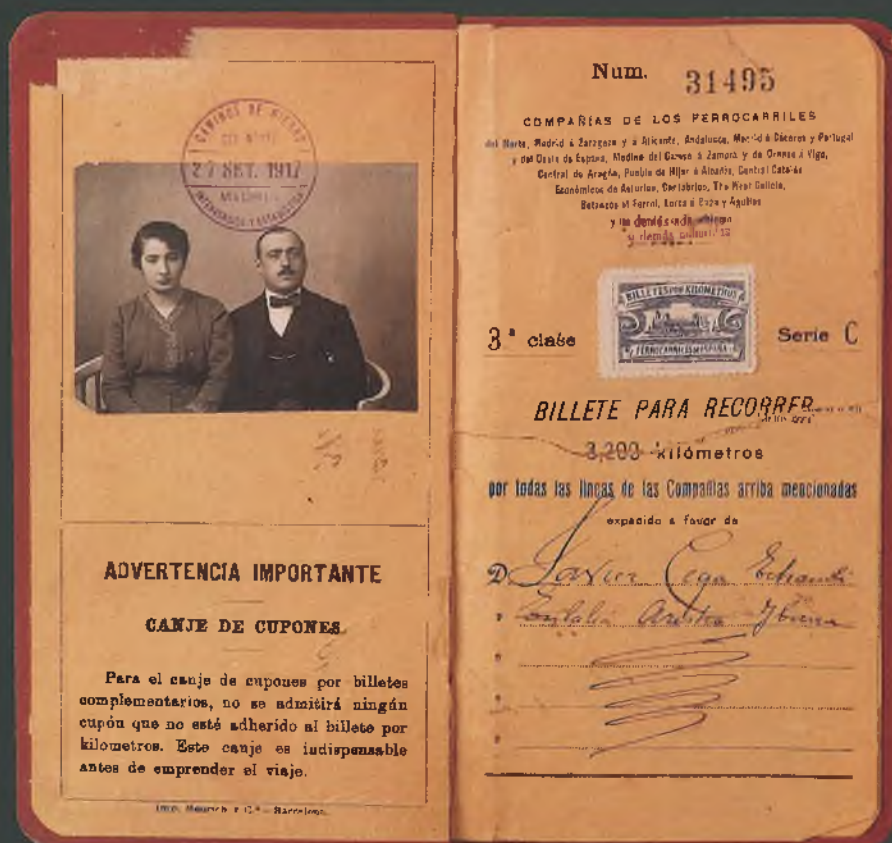 CAMINOS DE HIERRO
DEL NORTE
27 SET. 1917
MADRID
INTERVENCION Y ESTADISTICA
ADVERTENCIA IMPORTANTE
CANJE DE CUPONES
Para el canje de cupones por billetes
complementarios, no se admitirá ningún
cupón que no esté adherido al billete por
kilometros. Este canje es indispensable
antes de emprender el viaje.
Imp. Henrich y C.ª - Barcelona.
Num. 31495
COMPAÑIAS DE LOS FERROCARRILES
del Norte, Madrid á Zaragoza y á Alicante, Andaluces, Madrid á Cáceres y Portugal
y del Oeste de España, Medina del Campo á Zamora y de Orense á Vigo,
Central de Aragón, Puebla de Hijar á Alcañiz, Central Catalán
Económicos de Asturias, Cantábrico, The West Galicia,
Betanzos al Ferrol, Lorca á Baza y Aguilas
y demás
BILLETES POR KILOMETROS
FERROCARRILES DE ESPAÑA
3ª clase Serie C
BILLETE PARA RECORRER
3,200 kilómetros
por todas las líneas de las Compañías arriba mencionadas
expedido a favor de
D. Javier Echandi